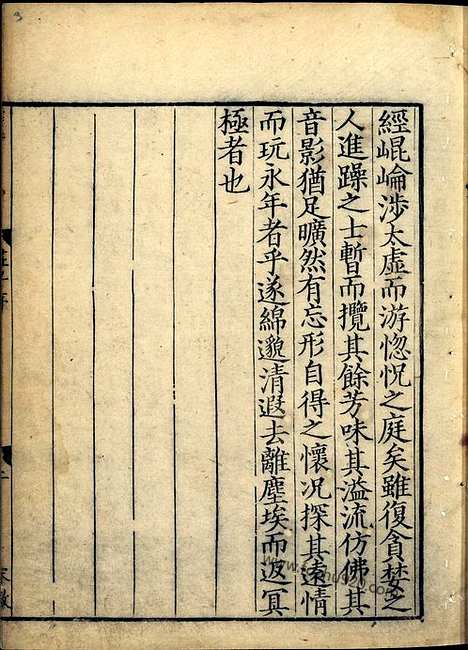 經崐崘涉太虛而游惚怳之庭矣雖復貪婪之
人進躁之士暫而攬其餘芳味其溢流仿佛其
音影猶足曠然有忘形自得之懷况探其遠情
而玩永年者乎遂綿邈清遐去離塵埃而返冥
極者也